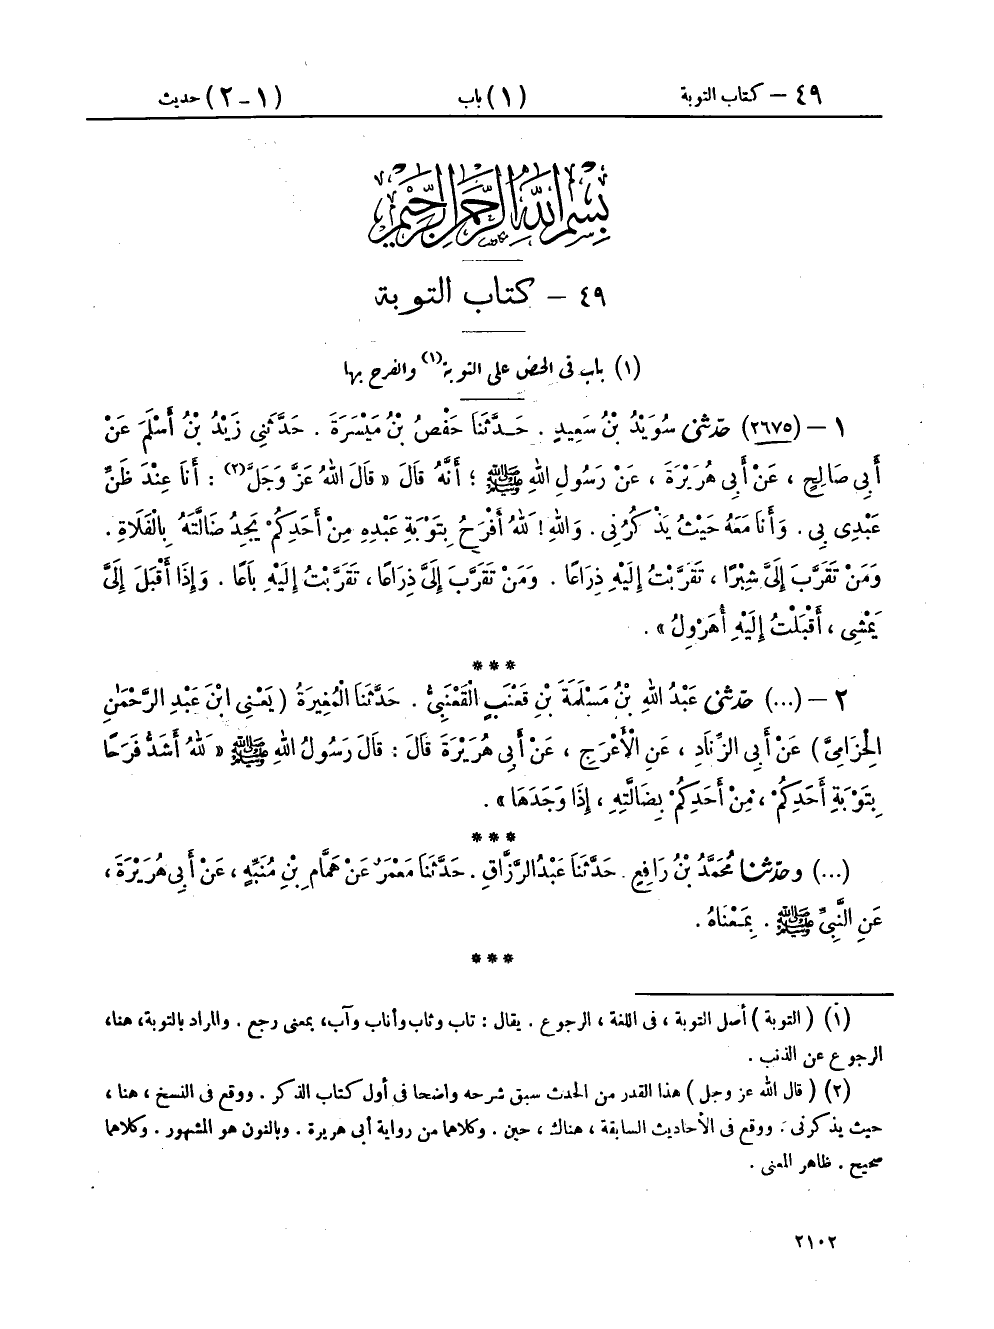 ٤٩ – كتاب التوبة (١) باب (١-٢) حديث
بِسْمِ اللَّهِ الرَّحْمَٰنِ الرَّحِيمِ
٤٩ – كتاب التوبة
(١) باب فى الحض على التوبة(١) والفرح بها
١ – (٢٦٧٥) حدّثنى سُوَيْدُ بْنُ سَعِيدٍ . حَدَّثَنَا حَفْصُ بْنُ مَيْسَرَةَ . حَدَّثَنِى زَيْدُ بْنُ أَسْلَمَ عَنْ
أَبِى صَالِحٍ ، عَنْ أَبِى هُرَيْرَةَ ، عَنْ رَسُولِ اللهِ ﷺ ؛ أَنَّهُ قَالَ « قَالَ اللهُ عَزَّ وَجَلَّ(٢) : أَنَا عِنْدَ ظَنِّ
عَبْدِى بِى . وَأَنَا مَعَهُ حَيْثُ يَذْكُرُنِى . وَاللهِ ! لَلّهُ أَفْرَحُ بِتَوْبَةِ عَبْدِهِ مِنْ أَحَدِكُمْ يَجِدُ ضَالَّتَهُ بِالْفَلَاةِ .
وَمَنْ تَقَرَّبَ إِلَىَّ شِبْرًا ، تَقَرَّبْتُ إِلَيْهِ ذِرَاعًا . وَمَنْ تَقَرَّبَ إِلَىَّ ذِرَاعًا ، تَقَرَّبْتُ إِلَيْهِ بَاعًا . وَإِذَا أَقْبَلَ إِلَىَّ
يَمْشِى ، أَقْبَلْتُ إِلَيْهِ أُهَرْوِلُ » .
***
٢ – (...) حدّثنى عَبْدُ اللهِ بْنُ مَسْلَمَةَ بْنِ قَعْنَبٍ الْقَعْنَبِىُّ . حَدَّثَنَا الْمُغِيرَةُ ( يَعْنِى ابْنَ عَبْدِ الرَّحْمٰنِ
الْحِزَامِىَّ ) عَنْ أَبِى الزِّنَادِ ، عَنِ الْأَعْرَجِ ، عَنْ أَبِى هُرَيْرَةَ قَالَ : قَالَ رَسُولُ اللهِ ﷺ « لَلّهُ أَشَدُّ فَرَحًا
بِتَوْبَةِ أَحَدِكُمْ ، مِنْ أَحَدِكُمْ بِضَالَّتِهِ ، إِذَا وَجَدَهَا » .
***
(...) وحدّثنا مُحَمَّدُ بْنُ رَافِعٍ . حَدَّثَنَا عَبْدُ الرَّزَّاقِ . حَدَّثَنَا مَعْمَرٌ عَنْ هَمَّامِ بْنِ مُنَبِّهٍ ، عَنْ أَبِى هُرَيْرَةَ ،
عَنِ النَّبِىِّ ﷺ . بِمَعْنَاهُ .
***
(١) ( التوبة ) أصل التوبة ، فى اللغة ، الرجوع . يقال : تاب وثاب وأناب وآب، بمعنى رجع . والمراد بالتوبة، هنا،
الرجوع عن الذنب .
(٢) ( قال الله عز وجل ) هذا القدر من الحدث سبق شرحه واضحا فى أول كتاب الذكر . ووقع فى النسخ ، هنا ،
حيث يذكرنى . ووقع فى الأحاديث السابقة ، هناك ، حين . وكلاهما من رواية أبى هريرة . وبالنون هو المشهور . وكلاهما
صحيح . ظاهر المعنى .
٢١٠٢